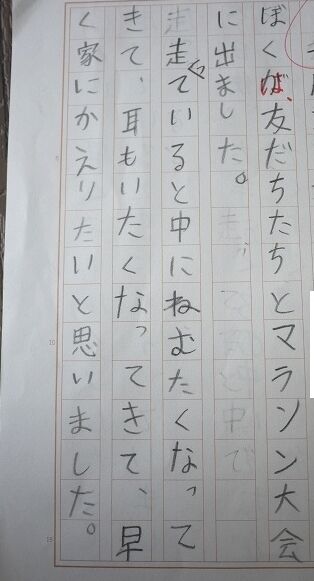 ぼくは、友だちたちとマラソン大会
に出ました。
走っていると中にねむたくなって
きて、耳もいたくなってきて、早
く家にかえりたいと思いました。